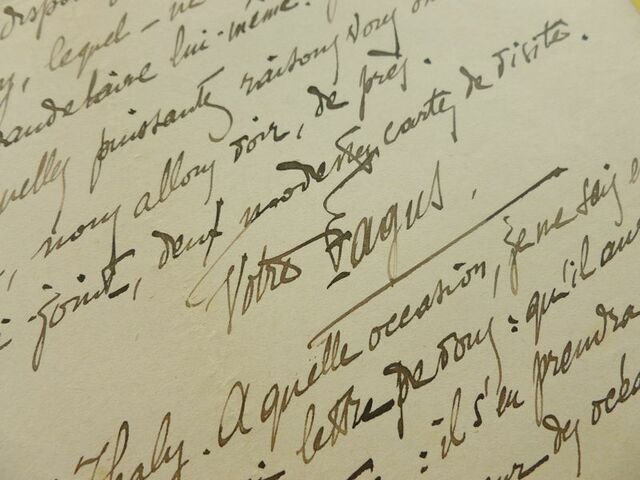 lequel - ne
lui-même.
puissantes raisons vous on
, nous allons voir, de près.
i-joint, deux modestes cartes de visite.
Votre Fagus.
Thaly. A quelle occasion, je ne sais
lettre de vous : qu'il aur
: il s'en prendra
des océa